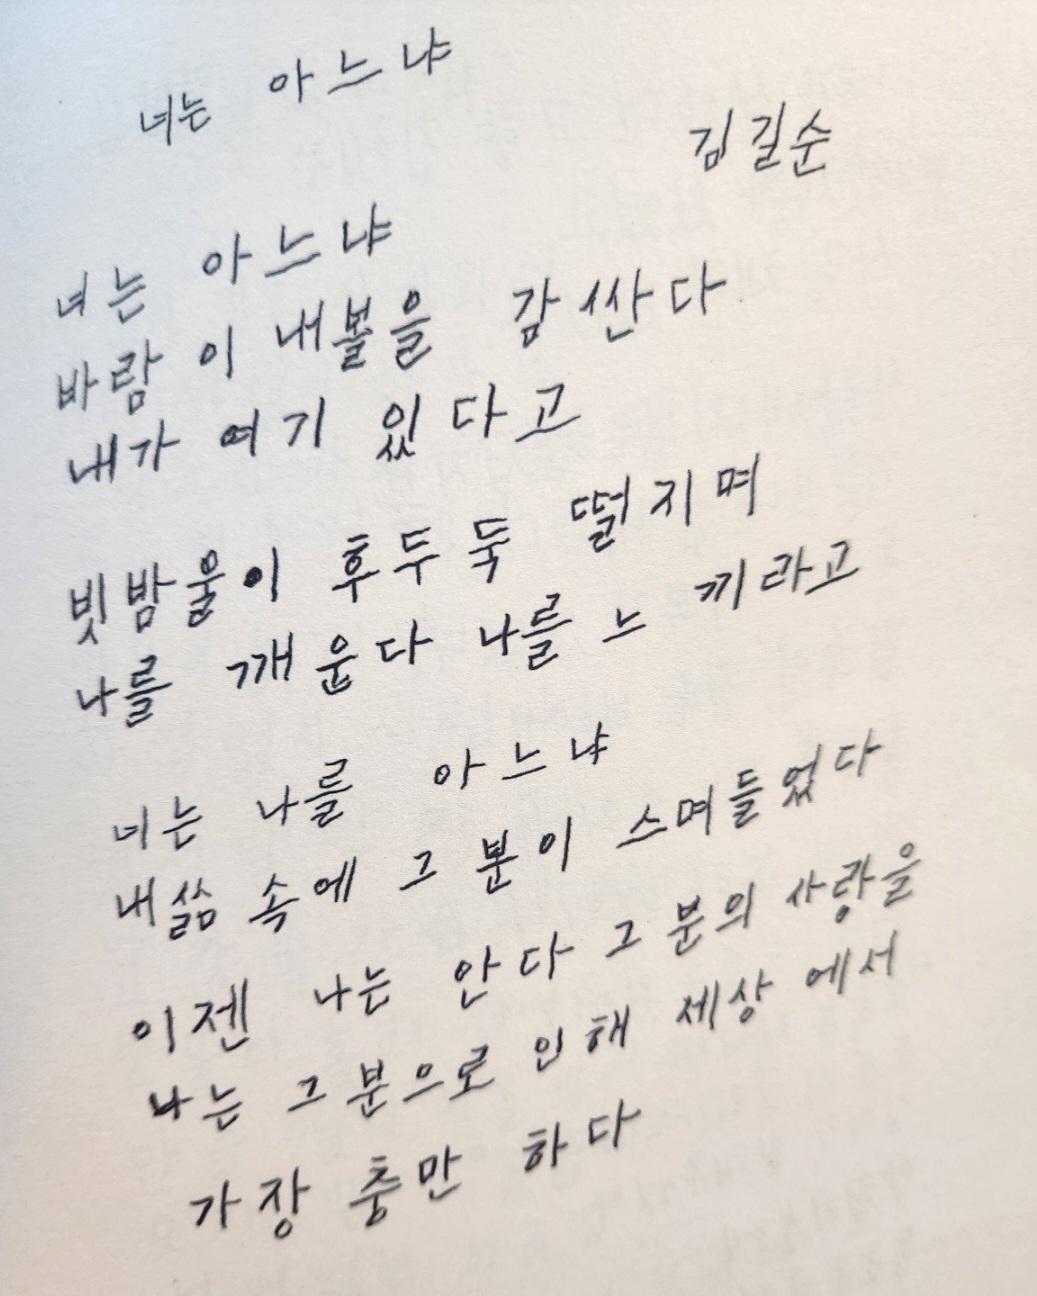 너는 아느냐
김길순
너는 아느냐
바람이 내볼을 감싼다
내가 여기 있다고
빗밤울이 후두둑 떨지며
나를 깨운다 나를 느끼라고
너는 나를 아느냐
내 삶 속에 그 분이 스며들었다
이젠 나는 안다 그 분의 사랑을
나는 그 분으로 인해 세상에서
가장 충만 하다